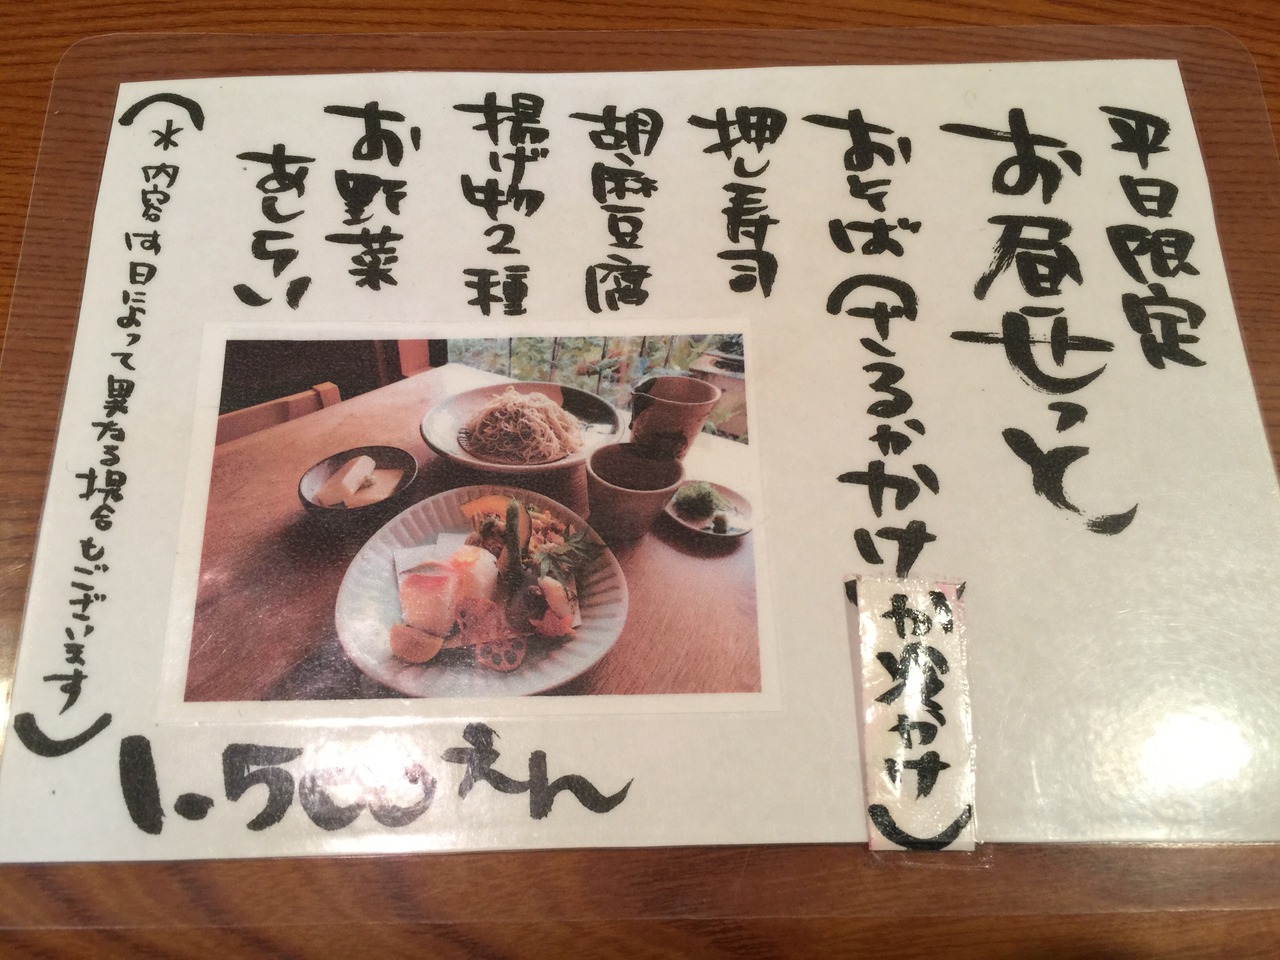 平日限定
お昼せっと
おそば(ざるかかけか冷かけ)
押し寿司
胡麻豆腐
揚げ物2種
お野菜
あしらい
(※内容は日によって異なる場合もございます)
1.500えん